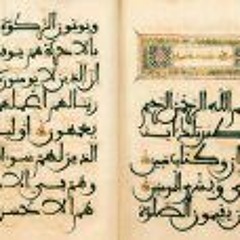 الله الرحمن الرحيم
تلك ايت
ان وكتاب مبين
وبشرى للمومنين
يقيمون الصلوة
ويوتون الزكوة
بالاخرة هم يوقنو
ان الذين لا يومنون
زينا لهم اعملهم
يعمهون اوليك
الذين لهم سو
وهم في الا
هم الاخسر